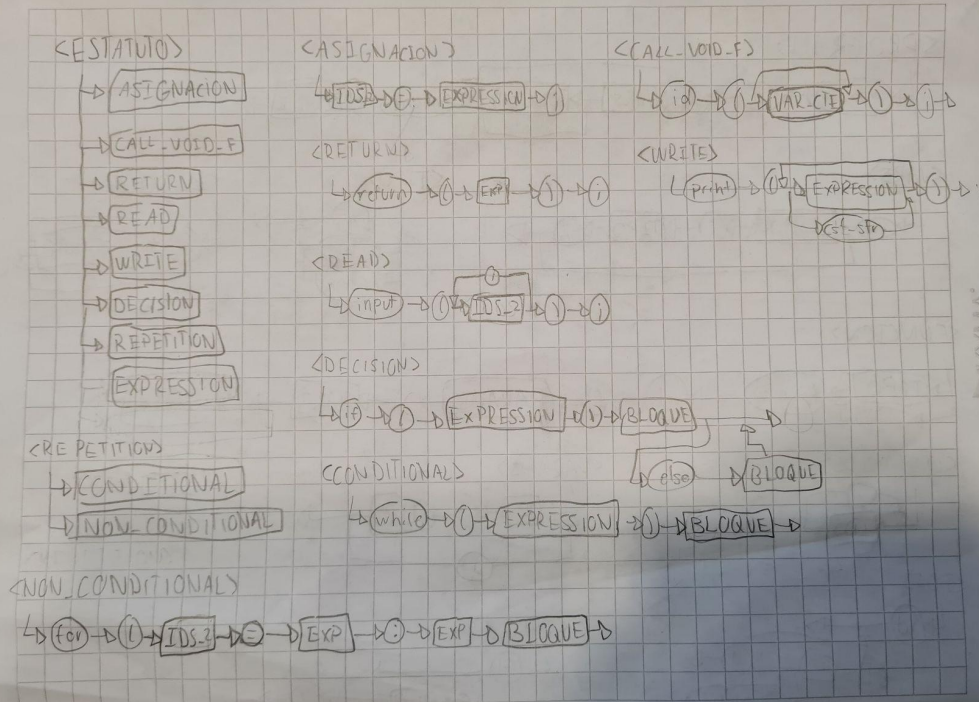 <ESTATUTO>
ASIGNACION
CALL_VOID_F
RETURN
READ
WRITE
DECISION
REPETITION
EXPRESSION
<REPETITION>
CONDITIONAL
NON_CONDITIONAL
<ASIGNACION>
= EXPRESSION ;
<RETURN>
return ( EXP ) ;
<READ>
input ( , IDS_2 ) ;
<DECISION>
if ( EXPRESSION ) BLOQUE
else BLOQUE
<CONDITIONAL>
while ( EXPRESSION ) BLOQUE
<CALL_VOID_F>
id ( VAR_CTE ) ;
<WRITE>
print ( EXPRESSION )
<NON_CONDITIONAL>
for ( IDS_2 = EXP : EXP BLOQUE